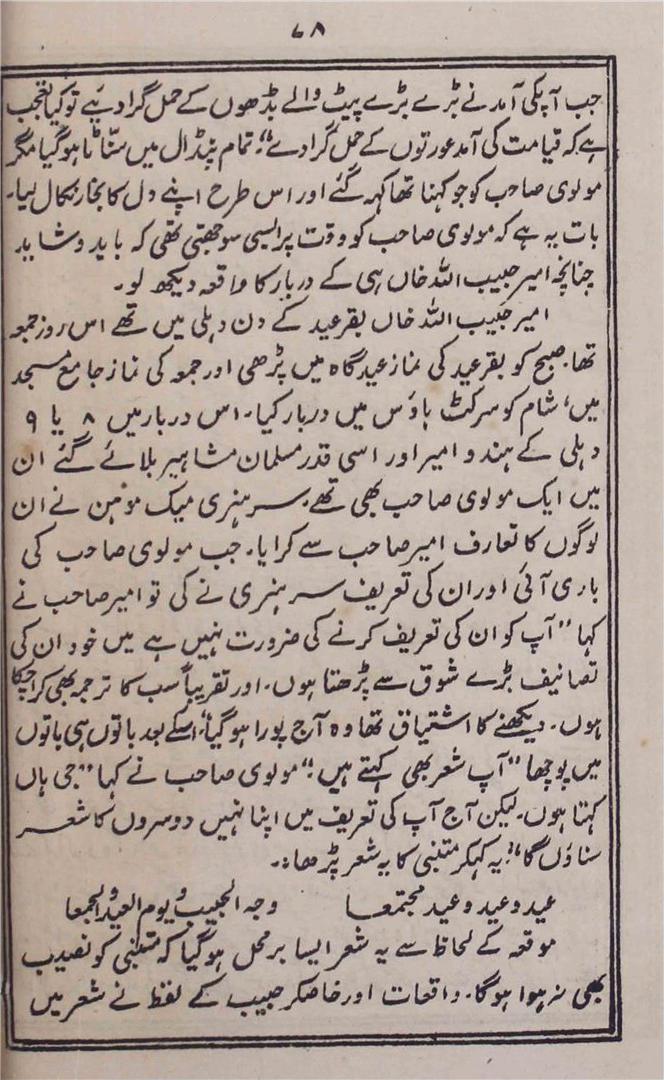 ۶۸
جب آپکی آمد نے بڑے بڑے پیٹ والے بڈھوں کے حمل گرا دیے تو کیا تعجب
ہے کہ قیامت کی آمد عورتوں کے حمل گرا دے"۔ تمام پنڈال میں سنّاٹا ہو گیا مگر
مولوی صاحب کو جو کہنا تھا کہہ گئے اور اس طرح اپنے دل کا بخار نکال لیا۔
بات یہ ہے کہ مولوی صاحب کو وقت پر ایسی سوجھتی تھی کہ باید و شاید
چنانچہ امیر حبیب اللہ خاں ہی کے دربار کا واقعہ دیکھ لو۔
امیر حبیب اللہ خاں بقر عید کے دن دہلی میں تھے اس روز جمعہ
تھا۔ صبح کو بقر عید کی نماز عیدگاہ میں پڑھی اور جمعہ کی نماز جامع مسجد
میں، شام کو سرکٹ ہاؤس میں دربار کیا۔ اس دربار میں ۸ یا ۹
دہلی کے ہندو امیر اور اسی قدر مسلمان مشاہیر بلائے گئے ان
میں ایک مولوی صاحب بھی تھے۔ سر ہنری میک موہن نے ان
لوگوں کا تعارف امیر صاحب سے کرایا۔ جب مولوی صاحب کی
باری آئی اور ان کی تعریف سر ہنری نے کی تو امیر صاحب نے
کہا "آپ کو ان کی تعریف کرنے کی ضرورت نہیں ہے میں خود ان کی
تصانیف بڑے شوق سے پڑھتا ہوں۔ اور تقریباً سب کا ترجمہ بھی کرا چکا
ہوں۔ دیکھنے کا اشتیاق تھا وہ آج پورا ہو گیا"، اسکے بعد باتوں ہی باتوں
میں پوچھا "آپ شعر بھی کہتے ہیں۔" مولوی صاحب نے کہا "جی ہاں
کہتا ہوں۔ لیکن آج آپ کی تعریف میں اپنا نہیں دوسروں کا شعر
سناؤں گا"۔ یہ کہکر متنبی کا یہ شعر پڑھا:۔
عید و عید و عید مجتمعا وجہ الحبیب و یوم العید و الجمعا
موقعہ کے لحاظ سے یہ شعر ایسا بر محل ہو گیا کہ متنبی کو نصیب
بھی نہ ہوا ہو گا۔ واقعات اور خاصکر حبیب کے لفظ نے شعر میں